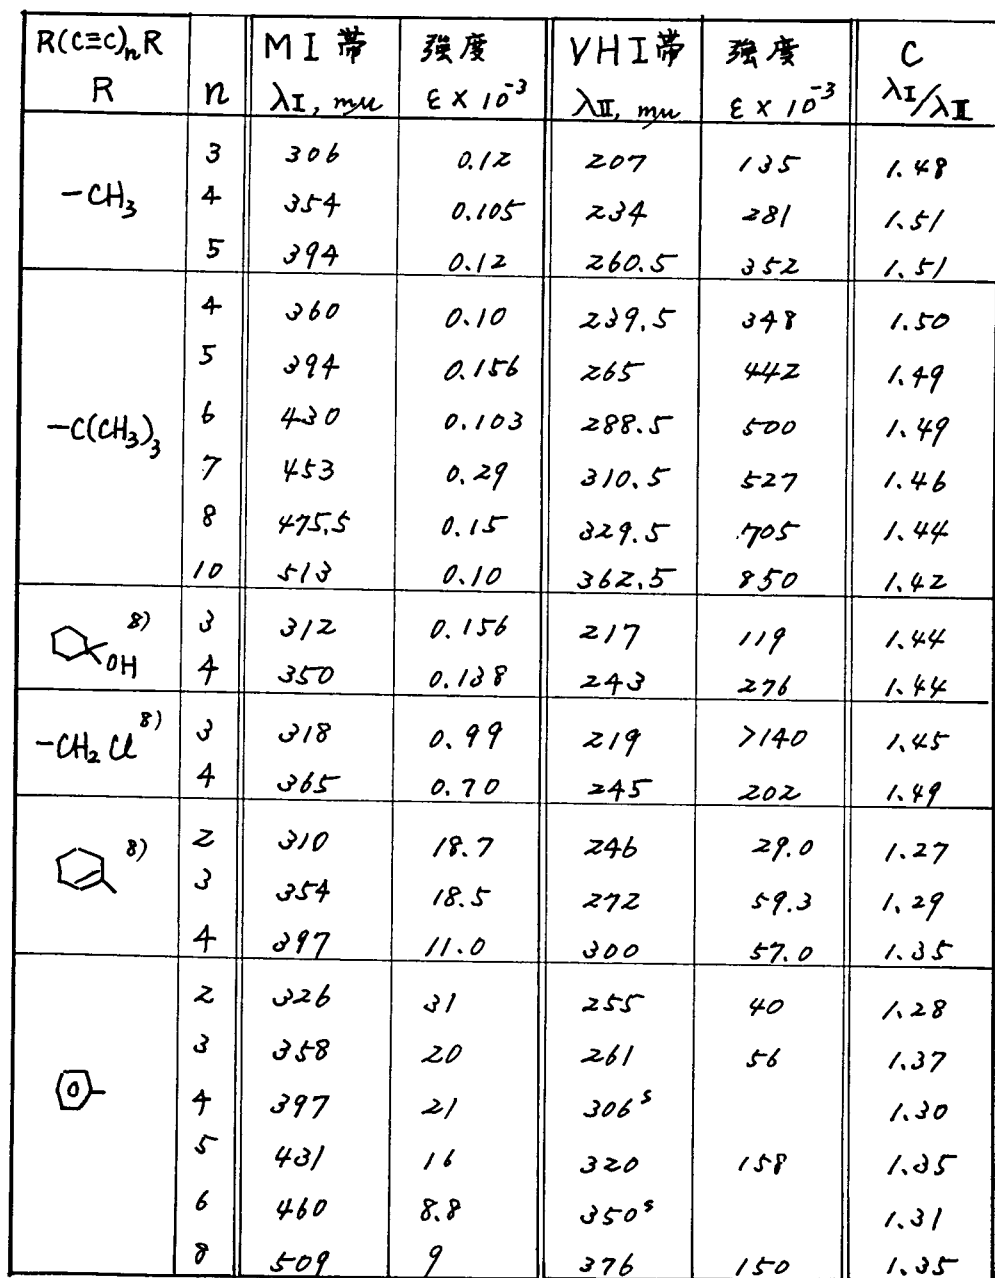 R(C≡C)nR MI帯 強度 VHI帯 強度 C
R n λI, mμ ε×10⁻³ λII, mμ ε×10⁻³ λI/λII
3 306 0.12 207 135 1.48
-CH₃ 4 354 0.105 234 281 1.51
5 394 0.12 260.5 352 1.51
4 360 0.10 239.5 348 1.50
5 394 0.156 265 442 1.49
-C(CH₃)₃ 6 430 0.103 288.5 500 1.49
7 453 0.29 310.5 527 1.46
8 475.5 0.15 329.5 705 1.44
10 513 0.10 362.5 850 1.42
8) 3 312 0.156 217 119 1.44
OH 4 350 0.138 243 276 1.44
-CH₂Cl 8) 3 318 0.99 219 >140 1.45
4 365 0.70 245 202 1.49
8) 2 310 18.7 246 29.0 1.27
3 354 18.5 272 59.3 1.29
4 397 11.0 300 57.0 1.35
2 326 31 255 40 1.28
3 358 20 261 56 1.37
4 397 21 306ˢ 1.30
5 431 16 320 158 1.35
6 460 8.8 350ˢ 1.31
8 509 9 376 150 1.35